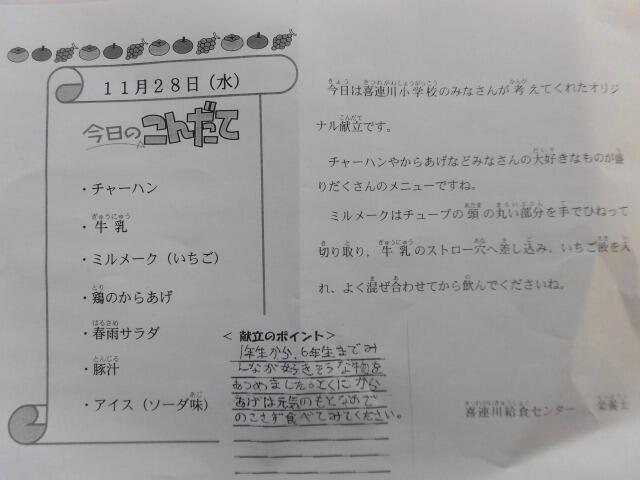 11月28日（水）
今日のこんだて
・チャーハン
・牛乳
・ミルメーク（いちご）
・鶏のからあげ
・春雨サラダ
・豚汁
・アイス（ソーダ味）
＜ 献立のポイント＞
1年生から、6年生までみ
んなが好きそうな物を
あつめました。とくにから
あげは元気のもとなので
のこさず食べてみてください。
今日は喜連川小学校のみなさんが考えてくれたオリジ
ナル献立です。
チャーハンやからあげなどみなさんの大好きなものが盛
りだくさんのメニューですね。
ミルメークはチューブの頭の丸い部分を手でひねって
切り取り，牛乳のストロー穴へ差し込み、いちご液を入
れ、よく混ぜ合わせてから飲んでくださいね。
喜連川給食センター 栄養士